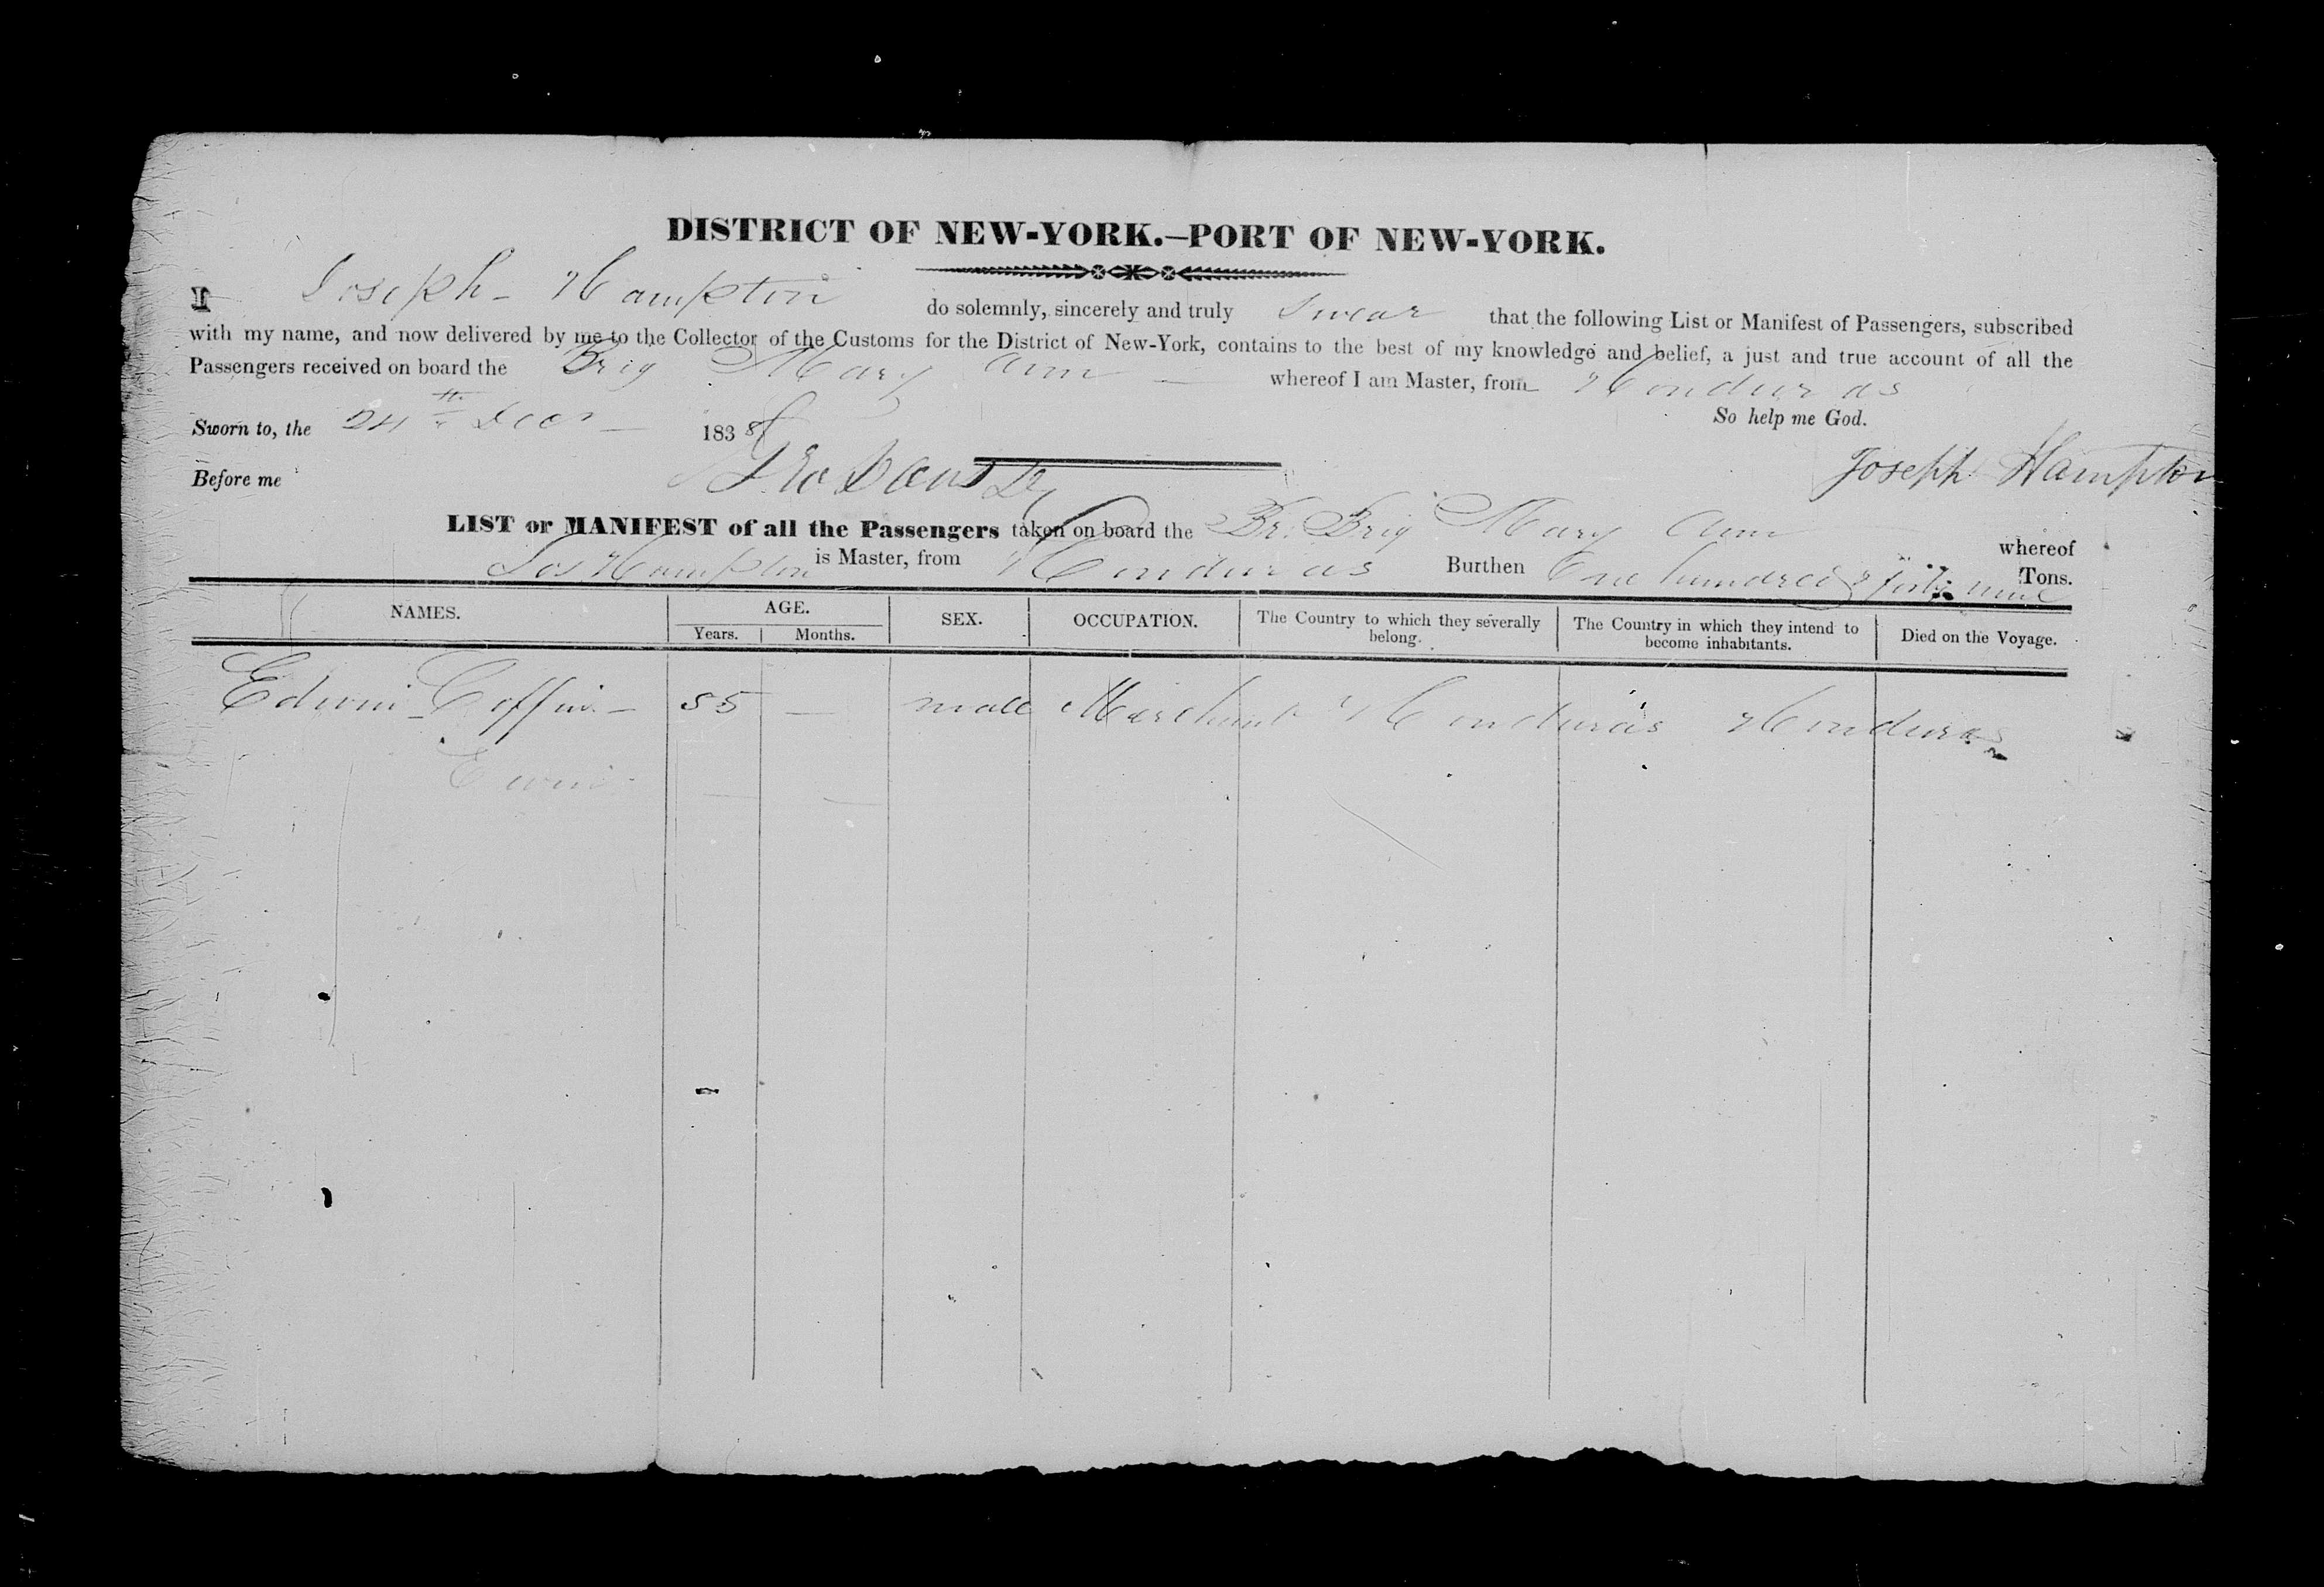 DISTRICT OF NEW-YORK.—PORT OF NEW-YORK.
I Joseph Hampton do solemnly, sincerely and truly Swear that the following List or Manifest of Passengers, subscribed
with my name, and now delivered by me to the Collector of the Customs for the District of New-York, contains to the best of my knowledge and belief, a just and true account of all the
Passengers received on board the Brig Mary Ann — whereof I am Master, from Honduras
Sworn to, the 24th Decr — 1838 So help me God.
Before me Joseph Hampton
LIST or MANIFEST of all the Passengers taken on board the Br. Brig Mary Ann whereof
Jos Hampton is Master, from Honduras Burthen One hundred & forty nine Tons.
NAMES. AGE. SEX. OCCUPATION. The Country to which they severally belong. The Country in which they intend to become inhabitants. Died on the Voyage.
Years. Months.
Edwin Coffin — 55 — male Merchant Honduras Honduras